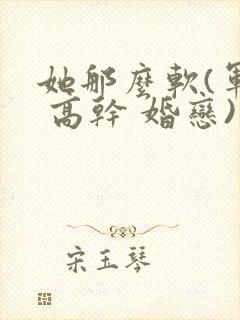 她那麼軟(軍
高幹 婚戀)
宋玉琴